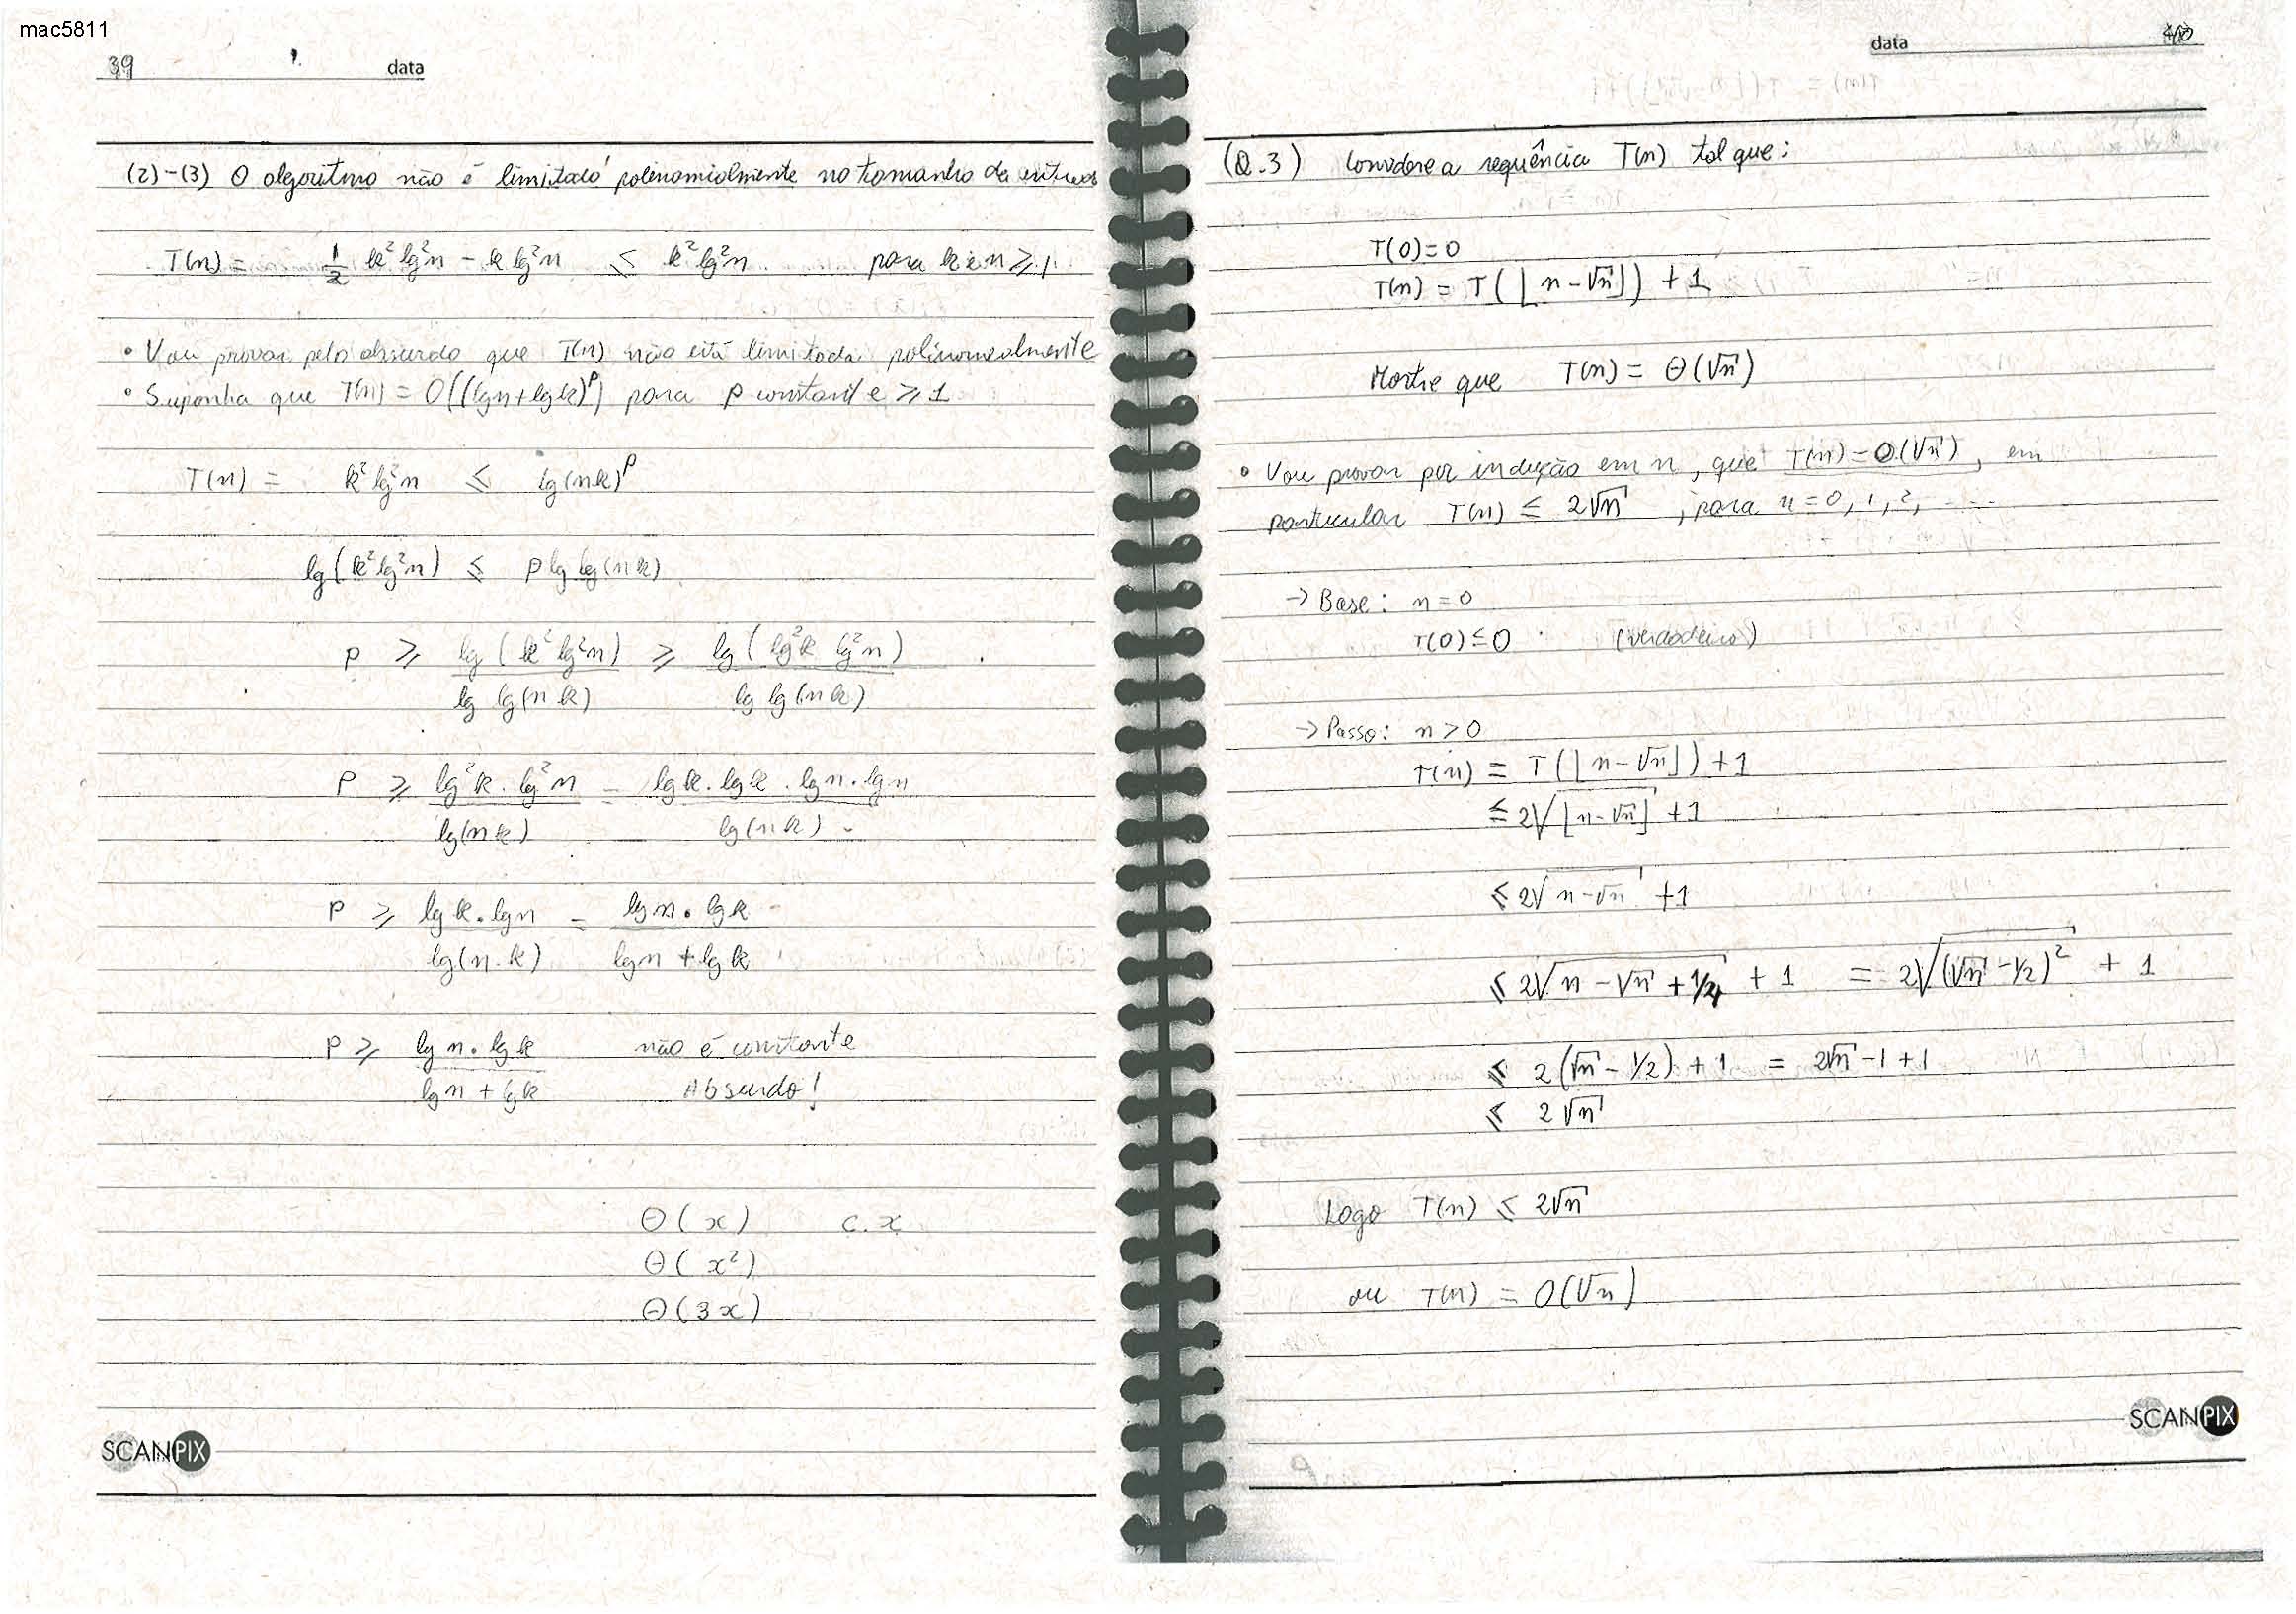 mac5811
39
data
(2)-(3) O algoritmo não é limitado polinomialmente no tamanho da entrada
T(n) = 1/2 k² lg²n - k lg²n ≤ k² lg²n para k e n ≥ 1.
• Vou provar pelo absurdo que T(n) não está limitada polinomialmente
• Suponha que T(n) = O((lg n + lg k)^p) para p constante ≥ 1
T(n) = k² lg²n ≤ lg(nk)^p
lg(k² lg²n) ≤ p lg lg(nk)
p ≥ lg(k² lg²n) / lg lg(nk) ≥ lg(lg²k lg²n) / lg lg(nk)
p ≥ lg²k . lg²n / lg(nk) = lg k . lg k . lg n . lg n / lg(nk)
p ≥ lg k . lg n / lg(n.k) = lg n . lg k / lg n + lg k
p ≥ lg n . lg k / lg n + lg k não é constante
Absurdo!
Θ(x) c.x
Θ(x²)
Θ(3x)
SCANPIX
data
40
(Q.3) Considere a sequência T(n) tal que:
T(0)=0
T(n) = T(⌊n-√n⌋) + 1
Mostre que T(n) = Θ(√n)
• Vou provar por indução em n, que T(n) = O(√n), em
particular T(n) ≤ 2√n, para n = 0, 1, 2, ....
→ Base: n=0
T(0) ≤ 0 (verdadeiro)
→ Passo: n > 0
T(n) = T(⌊n-√n⌋) + 1
≤ 2√⌊n-√n⌋ + 1
≤ 2√(n-√n) + 1
≤ 2√(n - √n + 1/4) + 1 = 2√((√n - 1/2)²) + 1
≤ 2(√n - 1/2) + 1 = 2√n - 1 + 1
≤ 2√n
Logo T(n) ≤ 2√n
ou T(n) = O(√n)
SCANPIX